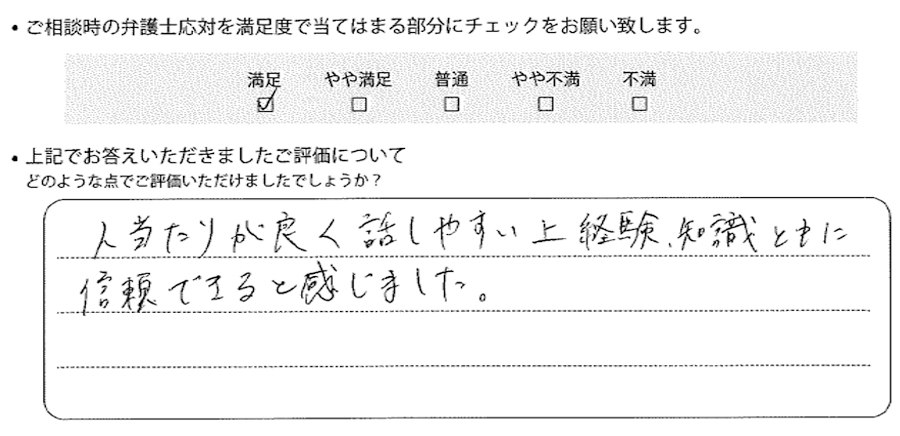 • ご相談時の弁護士応対を満足度で当てはまる部分にチェックをお願い致します。
満足 やや満足 普通 やや不満 不満
☑ □ □ □ □
• 上記でお答えいただきましたご評価について
どのような点でご評価いただけましたでしょうか？
人当たりが良く話しやすい上経験、知識ともに
信頼できると感じました。